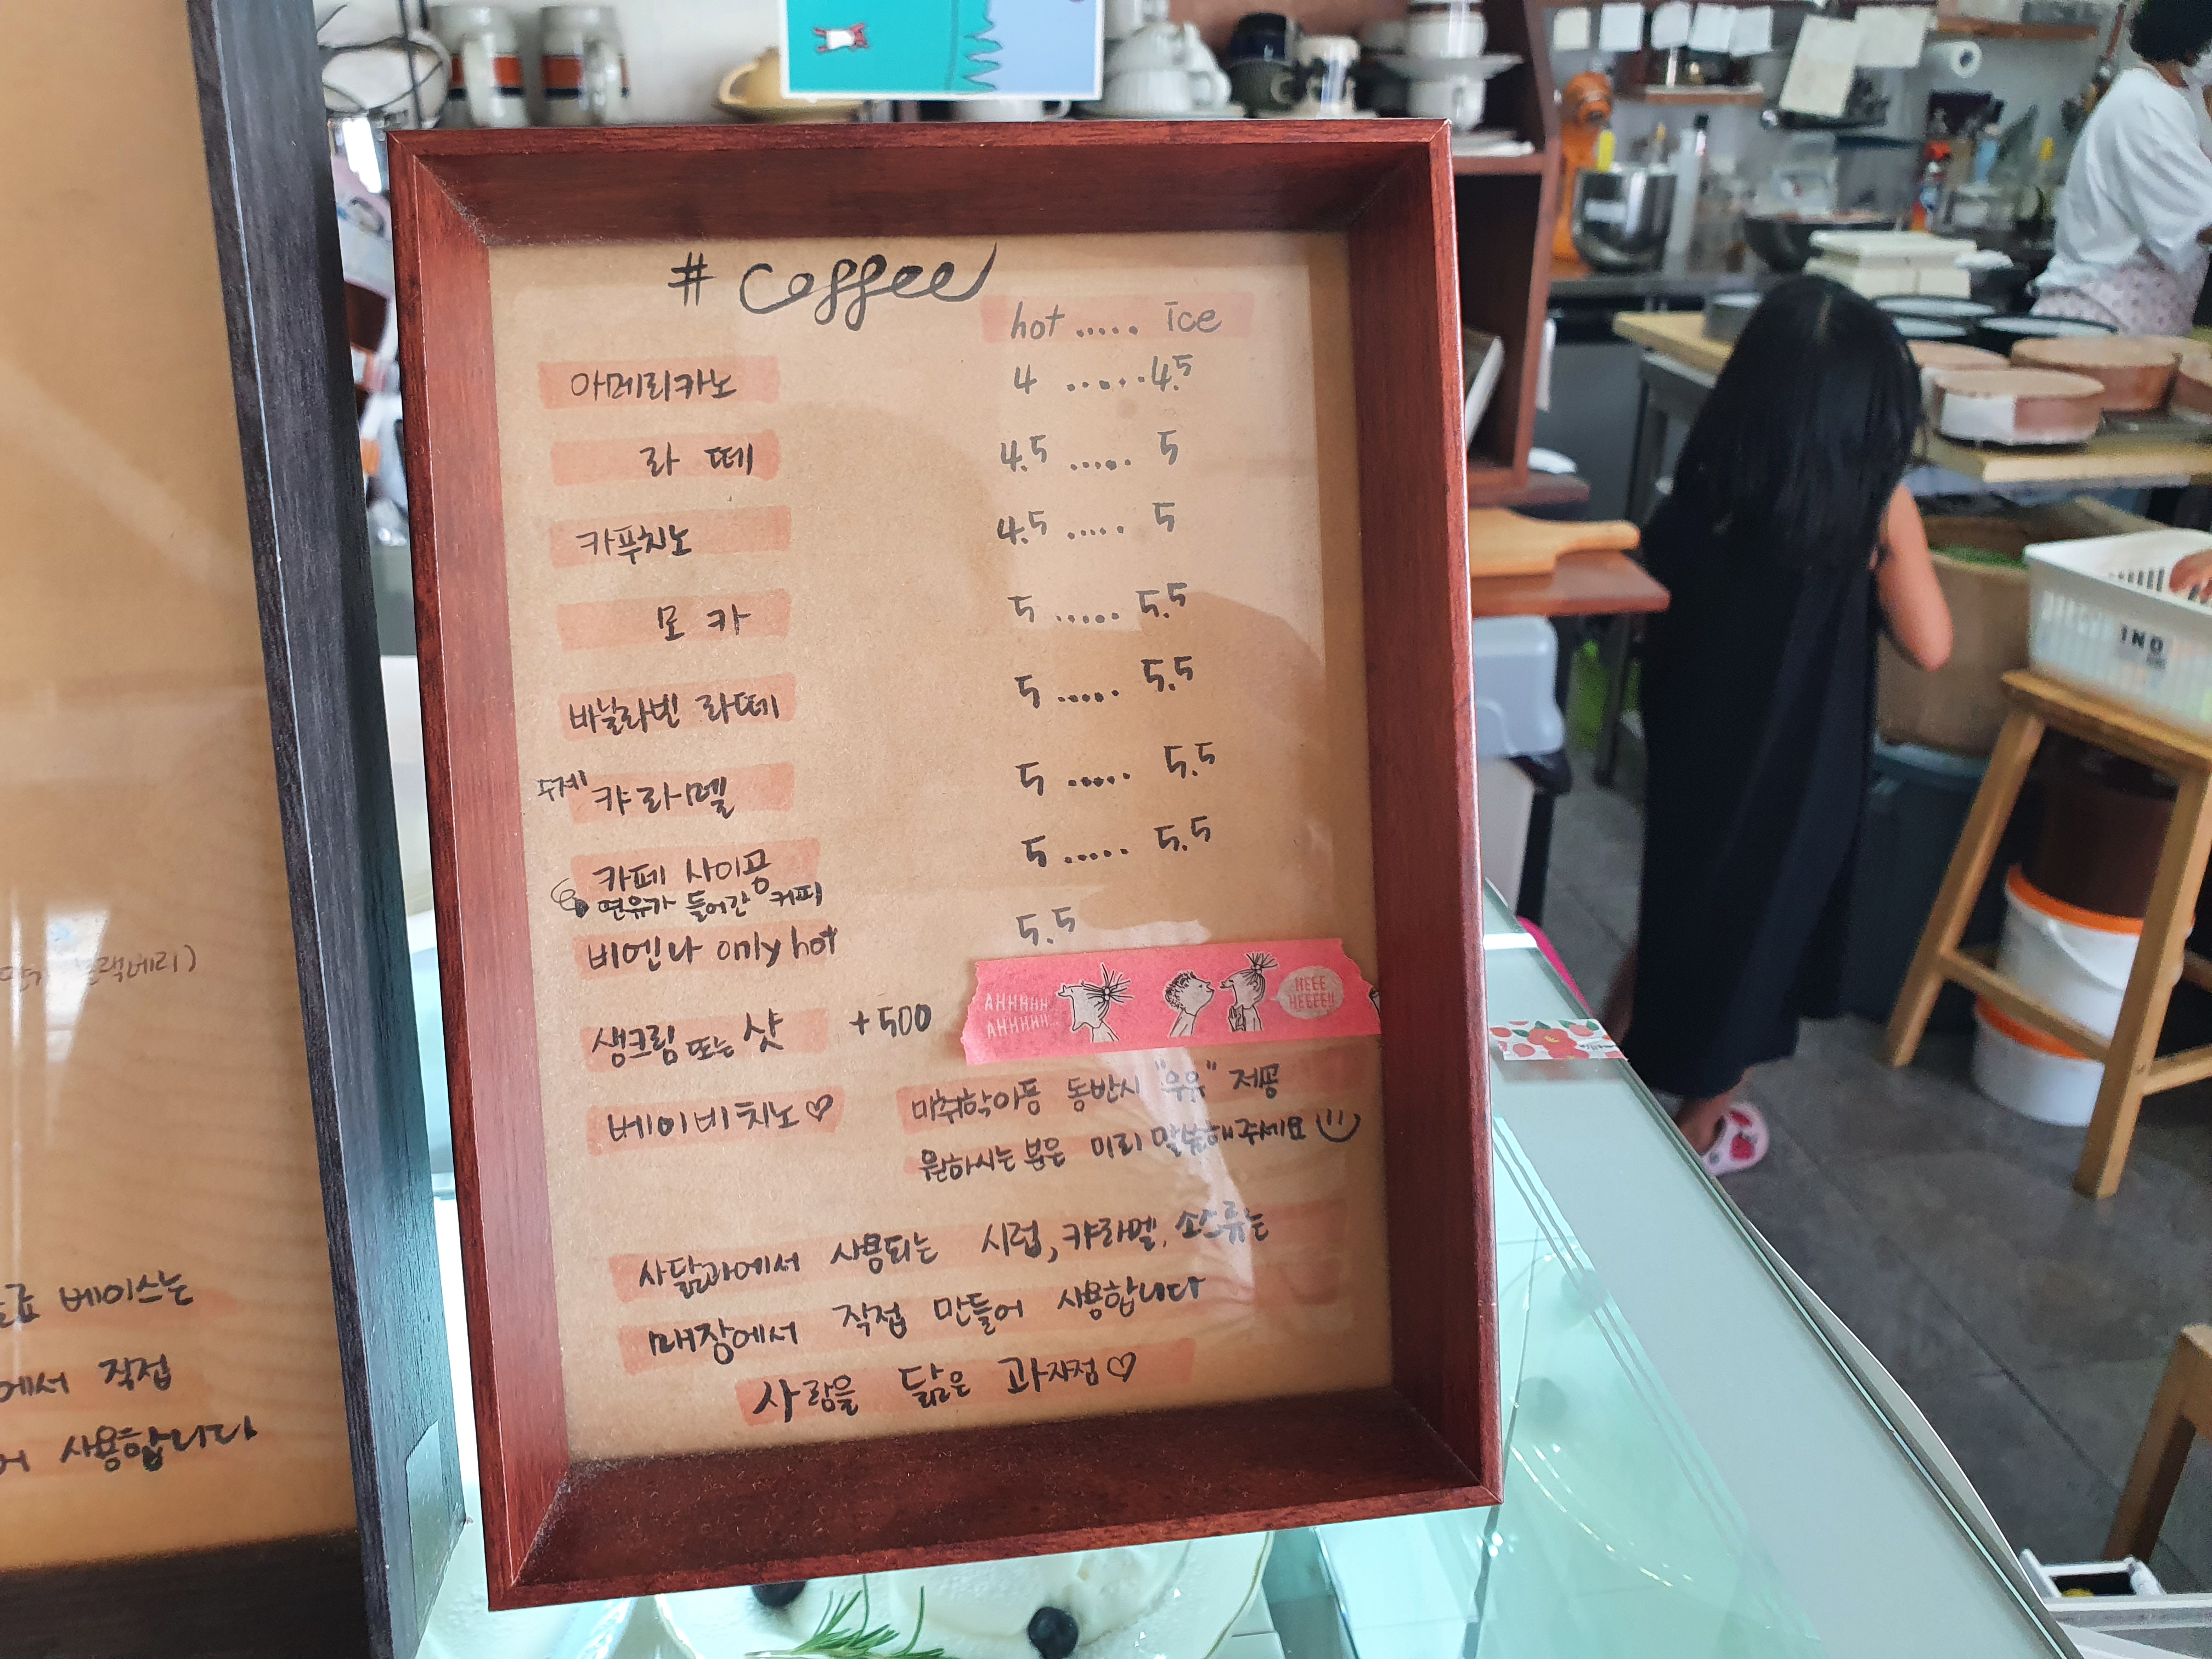 # coffee
hot ..... ice
아메리카노 4 ...... 4.5
라떼 4.5 ..... 5
카푸치노 4.5 ..... 5
모카 5 ..... 5.5
바닐라빈 라떼 5 ..... 5.5
수제 캬라멜 5 ..... 5.5
카페 사이공 5 ..... 5.5
연유가 들어간 커피
비엔나 only hot 5.5
AHHHHH
AHHHHH
HEEE
HEEEE!!
생크림 또는 샷 +500
베이비치노♡ 미취학아동 동반시 "우유" 제공
원하시는 분은 미리 말씀해주세요
사닮과에서 사용되는 시럽, 캬라멜, 소스류는
매장에서 직접 만들어 사용합니다
사람을 닮은 과자점♡
블랙베리)
베이스는
에서 직접
사용합니다
INO